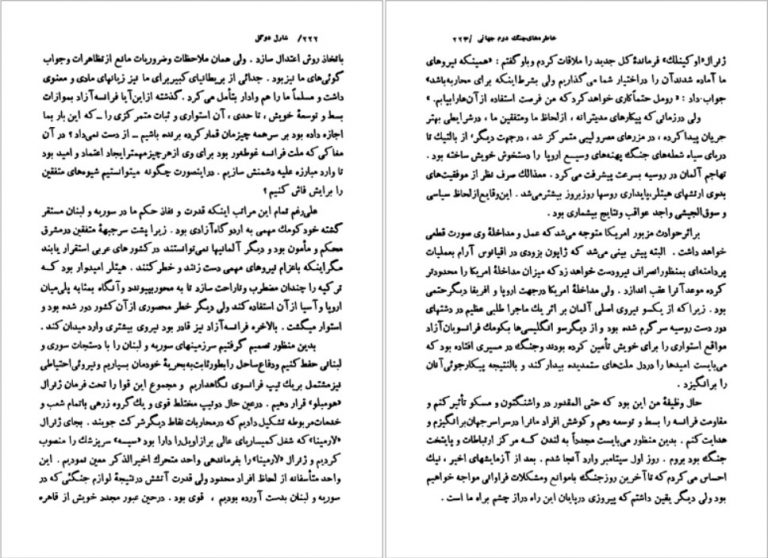 ۲۲۲/ شارل دوگل
باتخاذ روش اعتدال سازد . ولی همان ملاحظات وضروریات مانع ازتظاهرات وجواب
گوئی‌های ما نیزبود . جدائی از بریطانیای کبیربرای ما نیز زیانهای مادی و معنوی
داشت و مسلماً ما را هم وادار بتأمل می‌کرد . گذشته ازاین‌آیا فرانسه‌آزاد بموازات
بسط و توسعهٔ خویش ، تا حدی ، آن استواری و ثبات متمرکزی را ــ که این بار بما
اجازه داده بود بر سرهمه چیزمان قمارکرده برنده باشیم ــ از دست نمی‌داد؟ در آن
مغاکی که ملت فرانسه غوطه‌ور بود برای وی ازهرچیزمهمترایجاد اعتماد و امید بود
تا وارد مبارزه علیه دشمنش سازیم . دراینصورت چگونه میتوانستیم شیوه‌های متفقین
را برایش فاش کنیم ؟
علی‌رغم تمام این مراتب اینکه قدرت و نفاذ حکم ما در سوریه و لبنان مستقر
گشته خودکومك مهمی به اردوگاه‌آزادی بود . زیرا پشت سرجبههٔ متفقین درمشرق
محکم و مأمون بود و دیگر آلمانیها نمی‌توانستند درکشورهای عربی استقرار یابند
مگراینکه بااعزام نیروهای مهمی دست زاشد و خطرکنند . هیتلر امیدوار بود کـه
ترکیه را چندان مضطرب وناراحت سازد تا به محوربپیوندد وآنگاه بمثابه پلی‌میان
اروپا و آسیا از آن استفاده کند ولی دیگر خطر محصوری از آن کشور دور شده بود و
استوار میگشت . بالاخره فرانسهٔ‌آزاد نیز قادر بود نیروی بیشتری وارد میدان کند .
بدین منظور تصمیم گرفتیم سرزمینهای سوریه و لبنان را با دستجات سوری و
لبنانی حفظ کنیم ودفاع‌ساحل رابطورثابت‌به‌بحریهٔ خودمان بسپاریم ونیروئی‌احتیاطی
نیزمشتمل بریك تیپ فرانسوی نگاهداریم و مجموع این قوا را تحت فرمان ژنرال
«هومبلو» قرار دهیم . درعین حال دوتیپ مختلط قوی و یك گروه زرهی باتمام شعب و
خدمات‌مربوطه تشکیل دادیم که درمحاربات نقاط دیگرشرکت جویند . بجای ژنرال
«لارمینا» که شغل کمیساریای عالی برازاویل‌را دارا بود «سیسه» سرپزشك را منصوب
کردیم و ژنرال «لارمینا» را بفرماندهی واحد متحرك اخیرالذکر معین نمودیم . این
واحد متأسفانه از لحاظ افراد محدود ولی قدرت آتش درنتیجهٔ لوازم جنگئی که در
سوریه و لبنان بدست آورده بودیم ، قوی بود . درحین عبور مجدد خویش از قاهره
خاطره‌های جنگ دوم جهانی /۲۲۳
ژنرال«اوکینلك» فرماندهٔ‌کل جدید را ملاقات کردم وباوگفتم : «همینکه نیروهای
ما آماده شدندآن را دراختیار شما می‌گذاریم ولی بشرط‌اینکه برای محاربه‌باشد»
جواب‌داد : « رومل حتماًکاری خواهدکرد که من فرصت استفاده از آن‌هارابیابم . »
ولی درزمانی که پیکارهای مدیترانه ، ازلحاظ ما ومتفقین ما ، درشرایطی بهتر
جریان پیدا کرده ، در مرزهای مصر ولیبی متمرکز شد ، درجهت دیگر از بالتیك تا
دریای سیاه شعله‌های جنگ پهنه‌های وسیع اروپا را دستخوش خویش ساخته بود .
تهاجم آلمان در روسیه بسرعت پیشرفت می‌کرد . معذالك صرف نظر از موفقیت‌های
بدوی ارتشهای هیتلر،پایداری روسها روزبروز بیشترمی‌شد . این‌وقایع‌ازلحاظ سیاسی
و سوق‌الجیشی واجد عواقب ونتایج بیشماری بود .
براثرحوادث مزبور امریکا متوجه می‌شد که عمل و مداخلهٔ وی صورت قطعی
خواهد داشت . البته پیش بینی می‌شد که ژاپون بزودی در اقیانوس آرام بعملیات
پردامنه‌ای بمنظورانصراف نیرودست خواهد زدکه میزان مداخلهٔ امریکا را محدودتر
کرده موعدآنرا عقب اندازد . ولی مداخلهٔ امریکا درجهت اروپا و افریقا دیگرحتمی
بود . زیرا که از یکسو نیروی اصلی آلمان بر اثر یك ماجرا طلبی عظیم در دشتهای
دور دست روسیه سرگرم شده بود و از دیگرسو انگلیسی‌ها بکومك فرانسویان‌آزاد
مواقع استواری را برای خویش تأمین کرده بودند وجنگ در مسیری افتاده بود که
می‌بایست امیدها را دردل ملت‌های ستمدیده بیدارکند و بالنتیجه پیکارجوئی‌آنان
را برانگیزد .
حال وظیفهٔ من این بود که حتی المقدور در واشنگتون و مسکو تأثیر کنم و
مقاومت فرانسه را بسط و توسعه دهم وکوشش افراد مانرا درسراسرجهان‌برانگیزم و
هدایت کنم . بدین منظور می‌بایست مجدداً به لندن کـه مرکز ارتباطات و پایتخت
جنگ بود بروم . روز اول سپتامبر وارد آنجا شدم . بعد از آزمایشهای اخیر ، نیك
احساس می‌کردم که تاآخرین روزجنگ باموانع ومشکلات فراوانی مواجه خواهیم
بود ولی دیگر یقین داشتم‌که پیروزی درپایان این راه دراز چشم براه ما است .